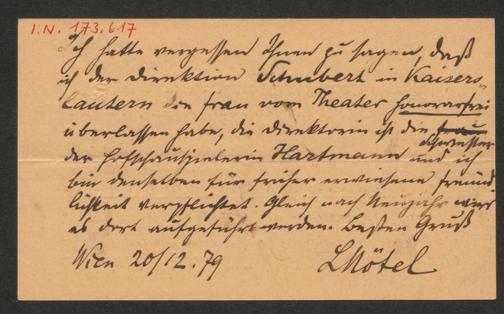 I.N. 173.617
Ich hatte vergessen Ihnen zu sagen, daß
ich der Direktion Schubert in Kaisers-
lautern die Frau vom Theater honorarfrei
überlassen habe, die Direktorin ist die Frau
Schwester
der Hofschauspielerin Hartmann und ich
bin denselben für früher erwiesene Freund
lichkeit verpflichtet. Gleich nach Neujahr wird
es dort aufgeführt werden. Besten Gruß
Wien 20/12.79 LMötel